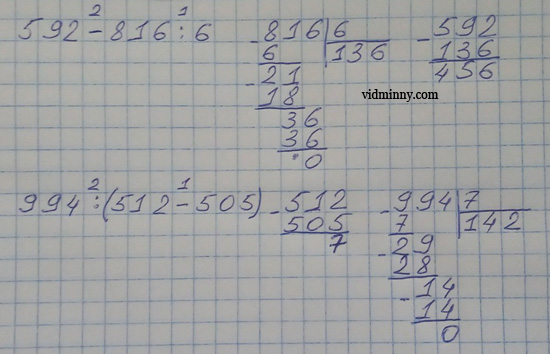 592 - 816 : 6
2 1
- 816 | 6
6 136
- 21
18
36
36
0
- 592
136
456
vidminny.com
994 : (512 - 505)
2 1
- 512
505
7
- 994 | 7
7 142
- 29
28
- 14
14
0